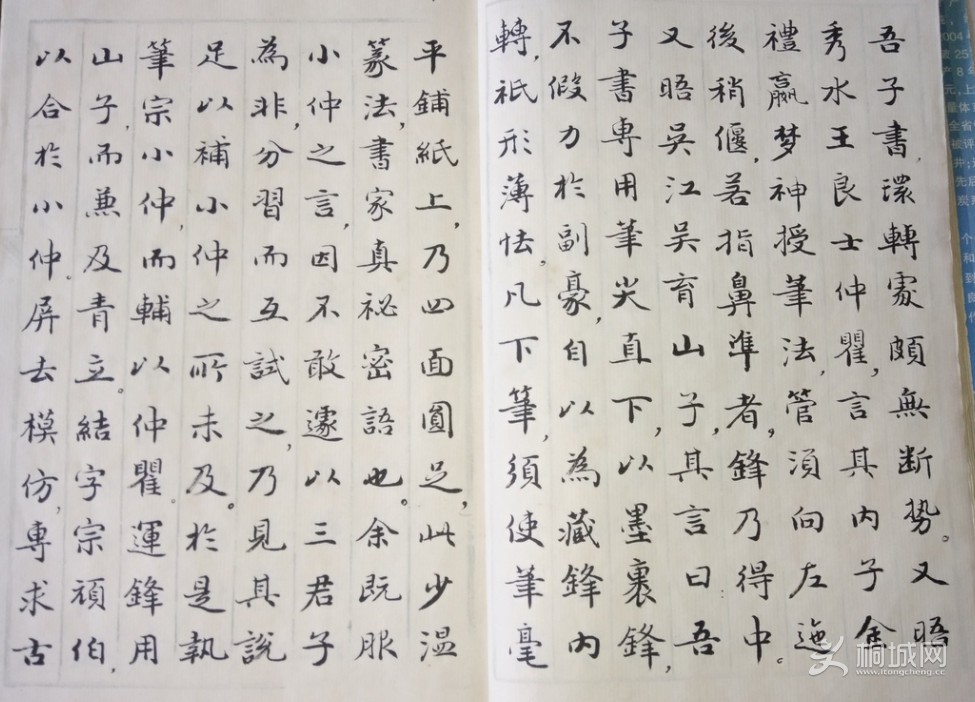 吾子書,環轉處頗無断势。又晤
秀水王良士仲瞿,言其内子金
禮嬴梦神授筆法,管須向左迤
後稍偃,若指鼻準者,鋒乃得中。
又晤吳江吴育山子,其言曰:吾
子書専用筆尖直下,以墨裹鋒,
不假力於副豪,自以為藏鋒内
轉,祇形薄怯,凡下筆,須使筆毫
平鋪紙上,乃四面圓足,此少温
篆法,書家真祕密語也。余既服
小仲之言,因不敢遽以三君子
為非,分習而互試之,乃見其說
足以補小仲之所未及。於是執
筆宗小仲,而輔以仲瞿。運鋒用
山子,而兼及青立。結字宗頑伯,
以合於小仲。屏去模仿,專求古
2004
桐城网
www.itongcheng.cc